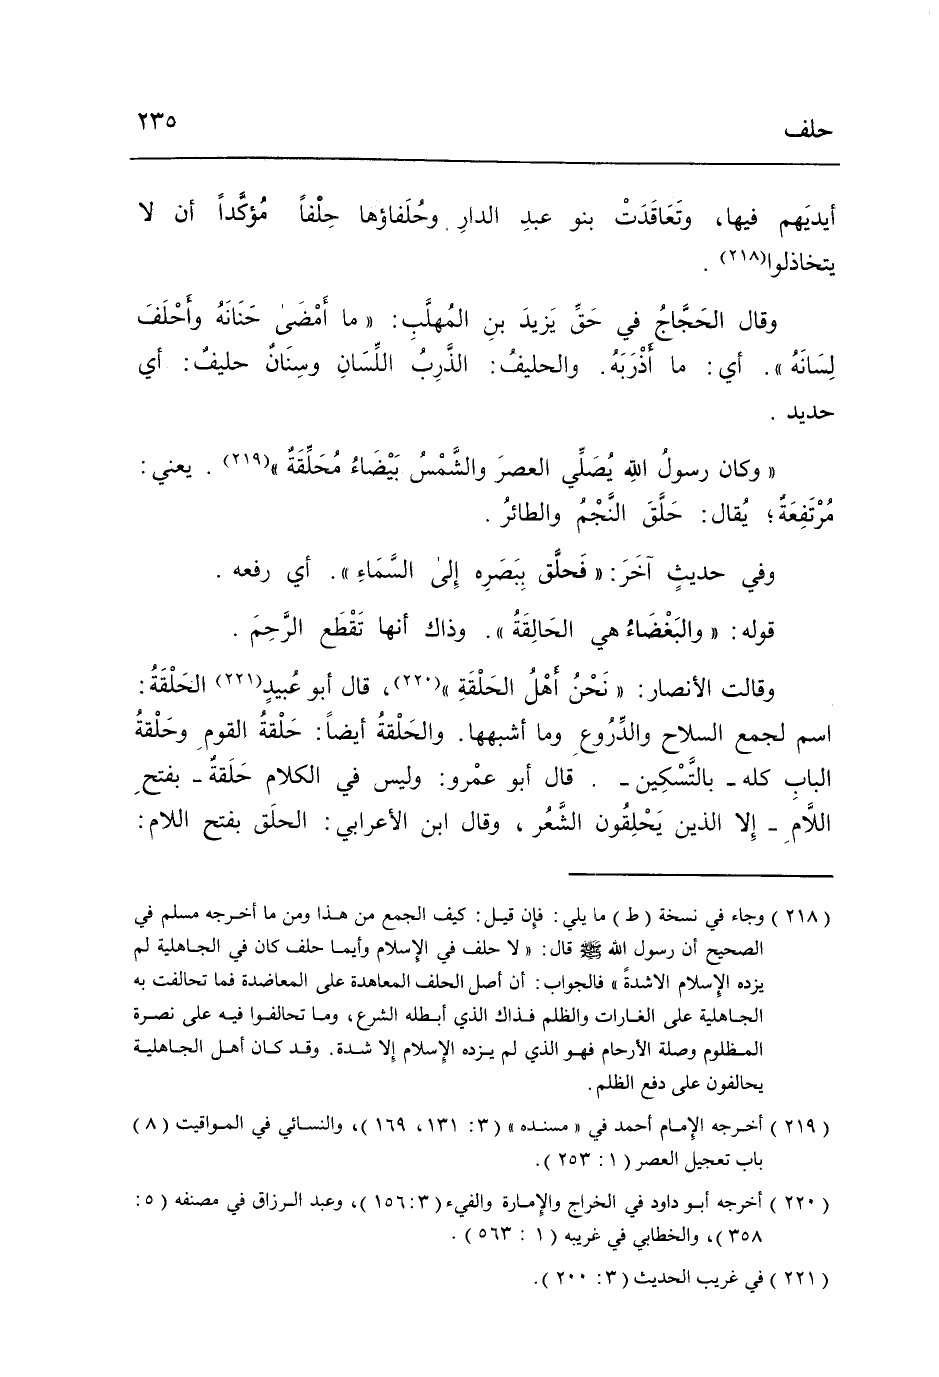 حلف ٢٣٥
أيديَهم فيها، وتَعَاقَدَتْ بنو عبدِ الدارِ وحُلَفاؤها حِلْفاً مُؤكَّداً أن لا
يتخاذلوا(٢١٨) .
وقال الحَجَّاجُ في حَقِّ يَزيدَ بنِ المُهلَّبِ: « ما أَمْضَىٰ حَنَانَهُ وأَحْلَفَ
لِسَانَهُ ». أي: ما أَذْرَبَهُ. والحليفُ: الذَّرِبُ اللِّسَانِ وسِنَانٌ حليفٌ: أي
حديد .
« وكان رسولُ اللهِ يُصَلِّي العصرَ والشَّمْسُ بَيْضَاءُ مُحَلِّقَةٌ »(٢١٩) . يعني:
مُرْتَفِعَةٌ؛ يُقال: حَلَّقَ النَّجْمُ والطائرُ .
وفي حديثٍ آخَرَ: « فَحلَّق بِبَصَرِه إِلىٰ السَّمَاءِ ». أي رفعه .
قوله: « والبَغْضَاءُ هي الحَالِقَةُ ». وذاك أنها تَقْطَع الرَّحِمَ .
وقالت الأنصار: « نَحْنُ أَهْلُ الحَلْقَةِ »(٢٢٠)، قال أبو عُبيدٍ(٢٢١) الحَلْقَةُ:
اسم لجمع السلاح والدِّرُوعِ وما أشبهها. والحَلْقةُ أيضاً: حَلْقةُ القوم وحَلْقةُ
البابِ كله ـ بالتَّسْكِين ـ . قال أبو عمْرو: وليس في الكلام حَلَقةٌ ـ بفتح
اللَّامِ ـ إلا الذين يَحْلِقُون الشَّعْر ، وقال ابن الأعرابي: الحلَق بفتح اللام:
( ٢١٨ ) وجاء في نسخة ( ط ) ما يلي: فإن قيل: كيف الجمع من هذا ومن ما أخرجه مسلم في
الصحيح أن رسول الله ﷺ قال: « لا حلف في الإسلام وأيما حلف كان في الجاهلية لم
يزده الإسلام الاشدةً » فالجواب: أن أصل الحلف المعاهدة على المعاضدة فما تحالفت به
الجاهلية على الغارات والظلم فذاك الذي أبطله الشرع، وما تحالفوا فيه على نصرة
المظلوم وصلة الأرحام فهو الذي لم يزده الإسلام إلا شدة. وقد كان أهل الجاهلية
يحالفون على دفع الظلم.
( ٢١٩ ) أخرجه الإمام أحمد في « مسنده » ( ٣: ١٣١، ١٦٩ )، والنسائي في المواقيت ( ٨ )
باب تعجيل العصر ( ١ : ٢٥٣ ).
( ٢٢٠ ) أخرجه أبو داود في الخراج والإمارة والفيء ( ٣ :١٥٦ )، وعبد الرزاق في مصنفه ( ٥ :
٣٥٨ )، والخطابي في غريبه ( ١ : ٥٦٣ ) .
( ٢٢١ ) في غريب الحديث ( ٣ : ٢٠٠ ).